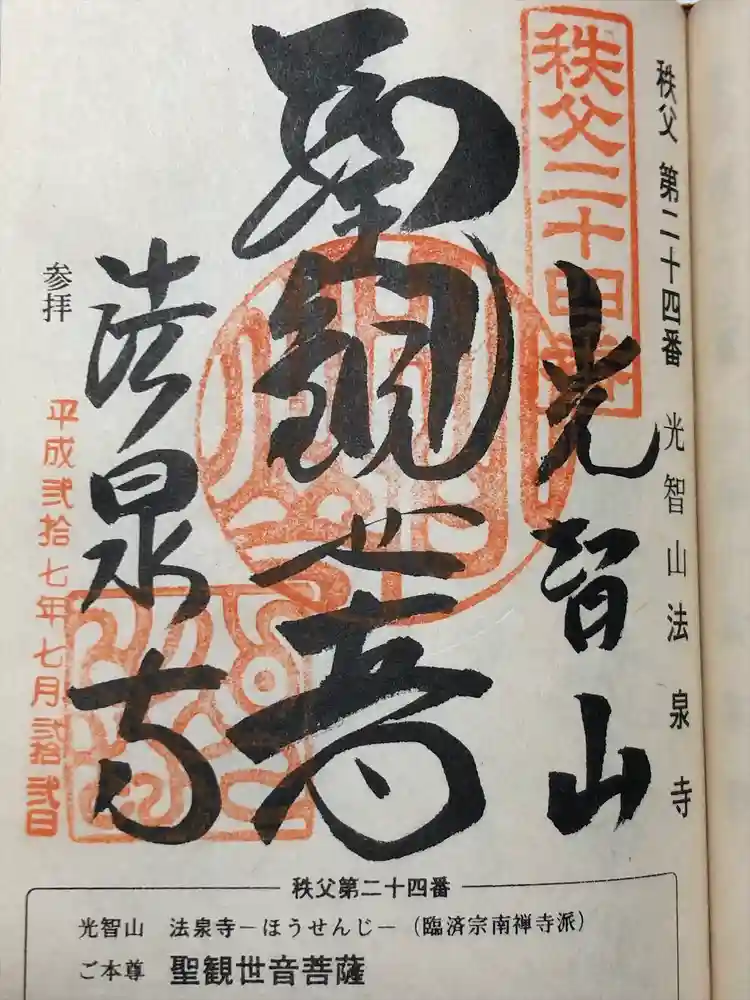 秩父 第二十四番 光智山法泉寺
秩父二十四番
光智山
聖観世音
法泉寺
参拝
平成弐拾七年七月弐拾弐日
秩父第二十四番
光智山 法泉寺－ほうせんじ－(臨済宗南禅寺派)
ご本尊 聖観世音菩薩